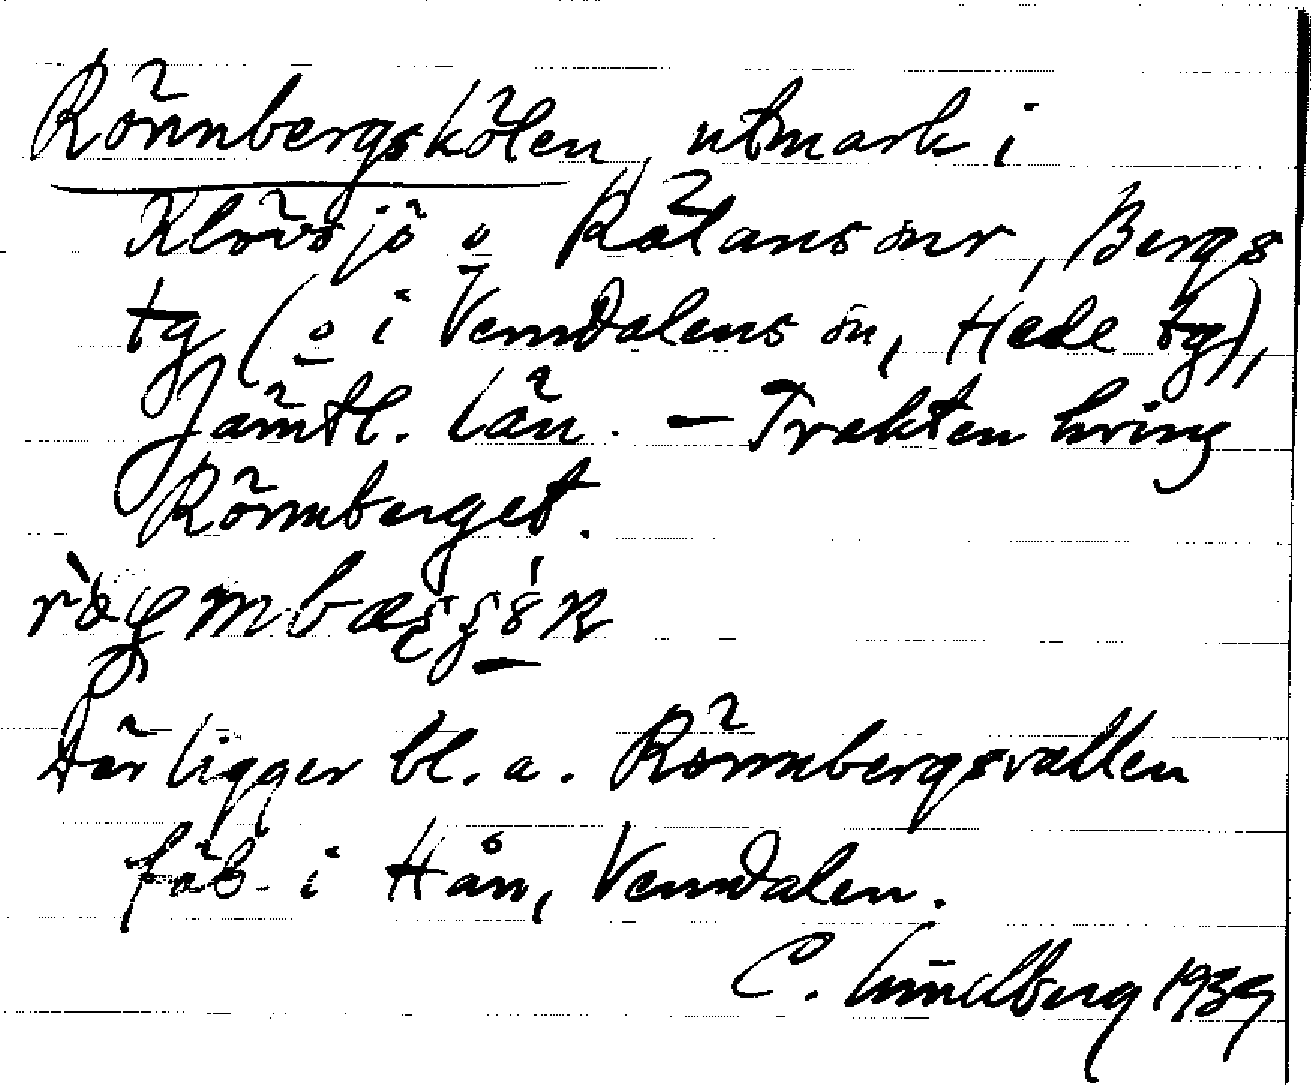 Rönnbergskölen, utmark i
Klövsjö o Rätans snr, Bergs
tg (o i Vemdalens sn, Hede tg),
Jämtl. län. – Trakten kring
Rönnberget.
Där ligger bl. a. Rönnbergsvallen
fäb. i Hån, Vemdalen.
C. Lundberg 1939